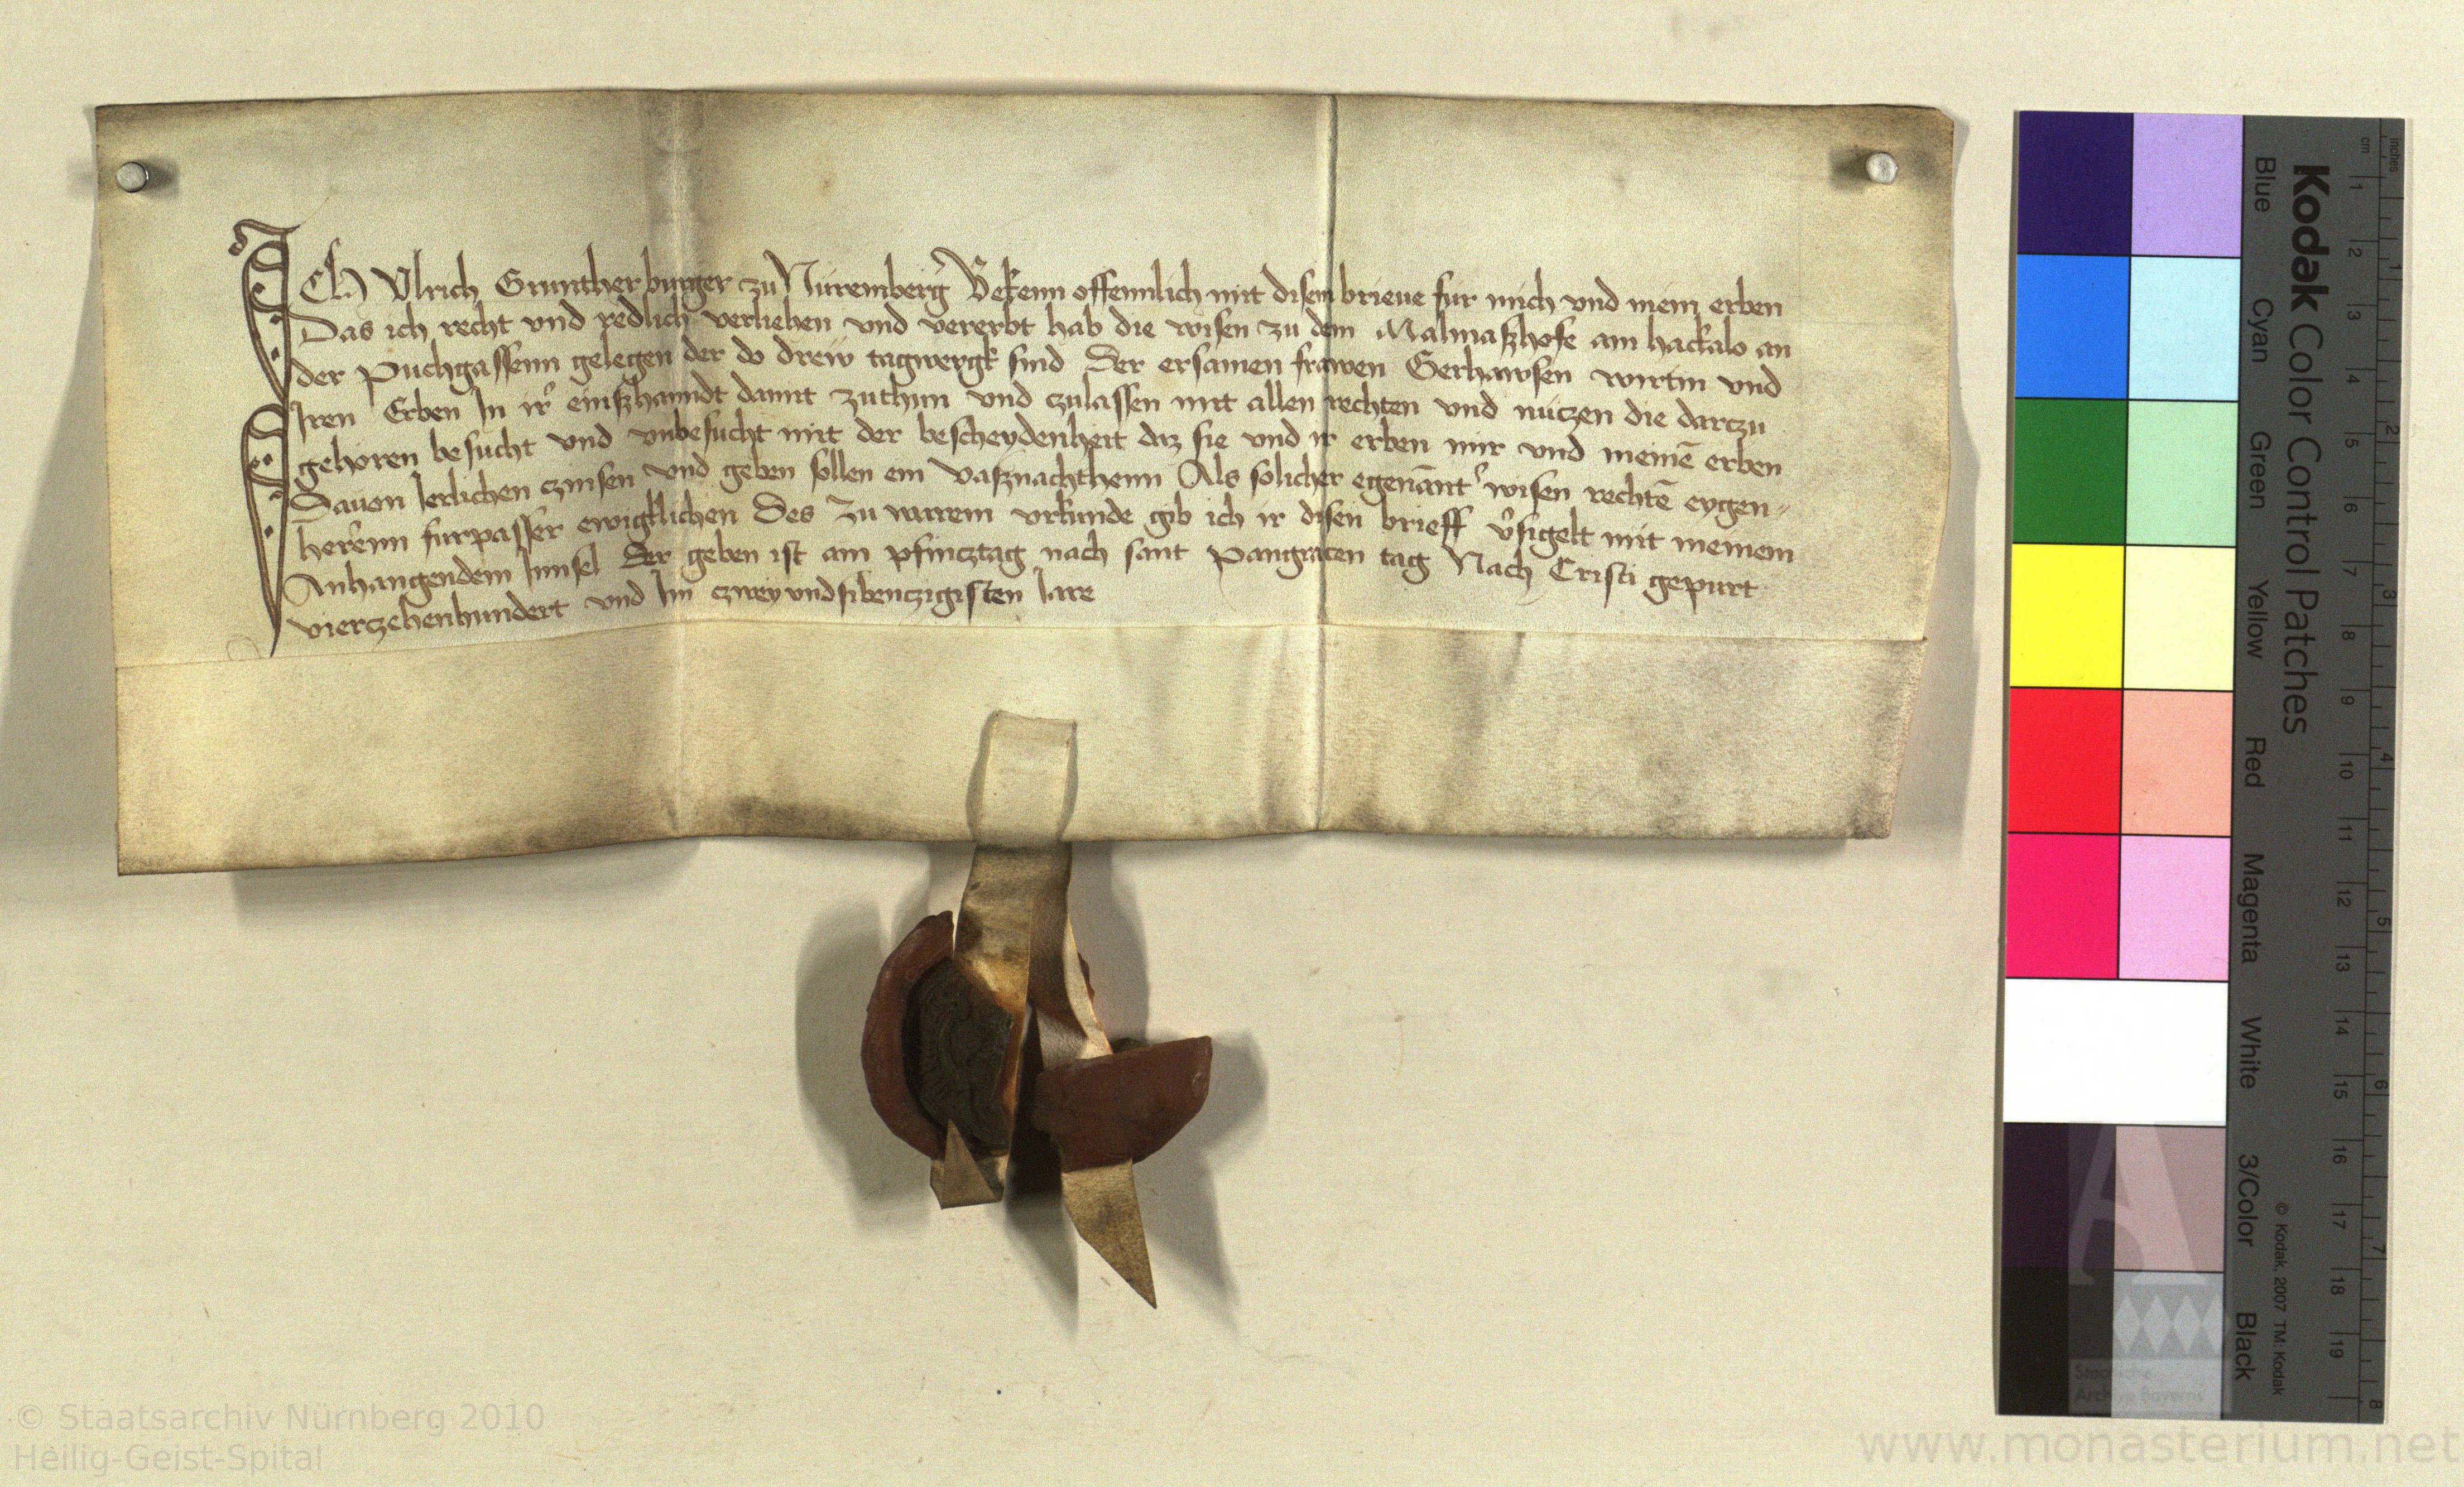 ICH Vlrich Grunther burger zu Nuremberg Bekenn offennlich mit disem brieue fur mich vnd mein erben
Das ich recht vnd redlich verliehen vnd vererbt hab die wisen zu dem Malmaßhofe am hackalo an
der Puchgassenn gelegen der do drew tagwergk sind Der ersamen frawen Gerhawsen wirtin vnd
Iren Erben In ir̉ einßhanndt damit zuthun vnd czulassen mit allen rechten vnd nuczen die darczu
gehoren besucht vnd vnbesucht mit der bescheydenheit daz sie vnd ir erben mir vnd meinē erben
Dauon Ierlichen czinsen vnd geben sollen ein vaßnachthenn Als solicher egenānt̉ wisen rechtē eygen
herenn furpasser ewigklichen Des Zu warem vrkunde gib ich ir disen brieff v̉sigelt mit meinem
Anhangendem Innsel Der geben ist am pfincztag nach sant Pangracen tag Nach Cristi gepurt
vierczehenhundert vnd Im czwey vnd sibenczigisten Iare
Kodak Color Control Patches
Blue Cyan Green Yellow Red Magenta White 3/Color Black
© Kodak, 2007 TM: Kodak
inches 1 2 3 4 5 6 7 8
cm 1 2 3 4 5 6 7 8 9 10 11 12 13 14 15 16 17 18 19
Staatliche
Archive Bayerns
© Staatsarchiv Nürnberg 2010
Heilig-Geist-Spital
www.monasterium.net